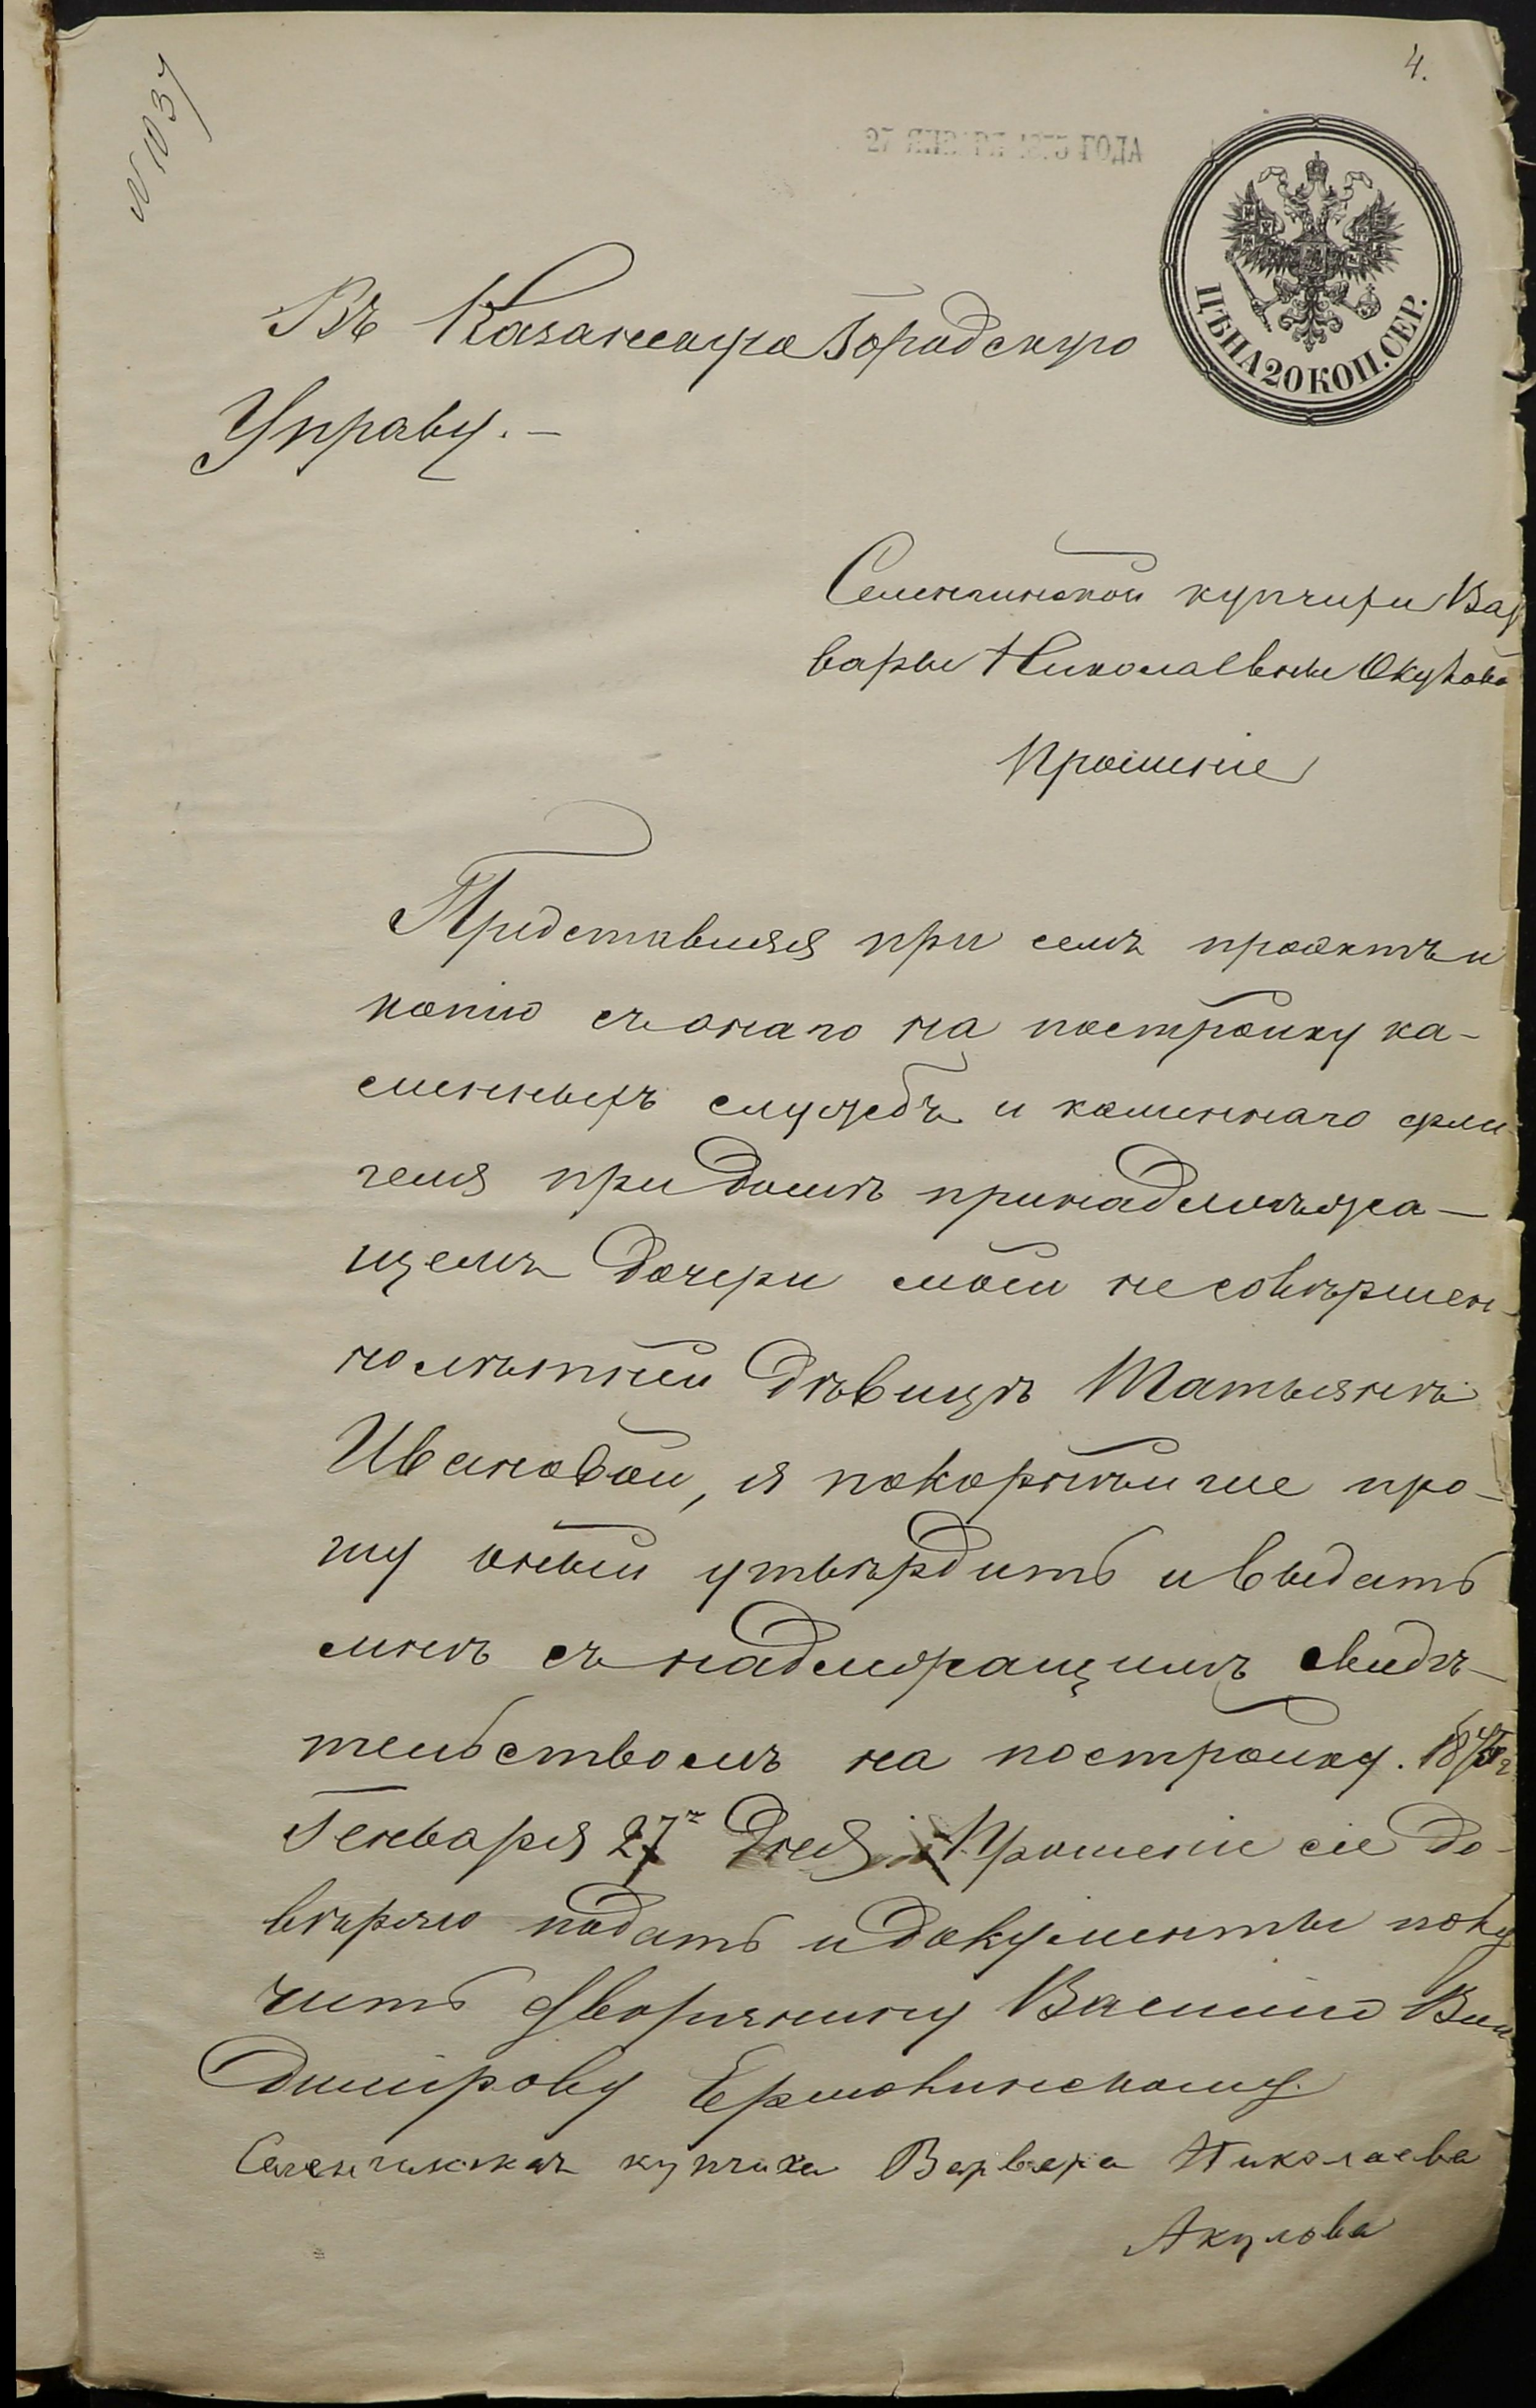 4.
N 1037
27 ЯНВАРЯ 1875 ГОДА
ЦѢНА 20 КОП. СЕР.
Въ Казанскую Городскую
Управу. –
Селенгинской купчихи Вар
вары Николаевны Окуловой
Прошеніе
Представляя при семъ проэктъ и
копію съ онаго на постройку ка-
менныхъ службъ и каменнаго фли
геля при домѣ принадлѣжа-
щемъ дочери моей несовѣршен-
нолѣтней дѣвицѣ Татьянѣ
Ивановой, я покорнѣйше про-
шу оный утвѣрдить и выдать
мнѣ съ надлежащимъ свидѣ-
тельствомъ на постройку. 1875 г.
Генваря 27 дня Прошеніе сіе до-
вѣряю подать и документы полу
чить дворянину Василію Вла
димірову Ермолинскому.
Селенгинская купчиха Варвара Николаева
Акулова